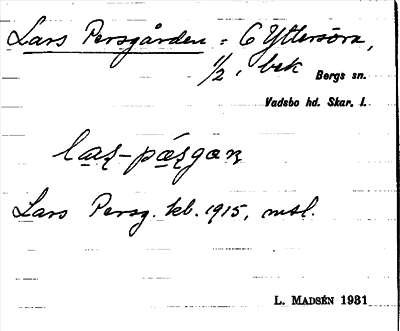 Lars Persgården = 6 Yttersöra,
1/2, bek
Bergs sn.
Vadsbo hd. Skar. l.
Lars Persg. kb. 1915, msl.
L. MADSÉN 1931